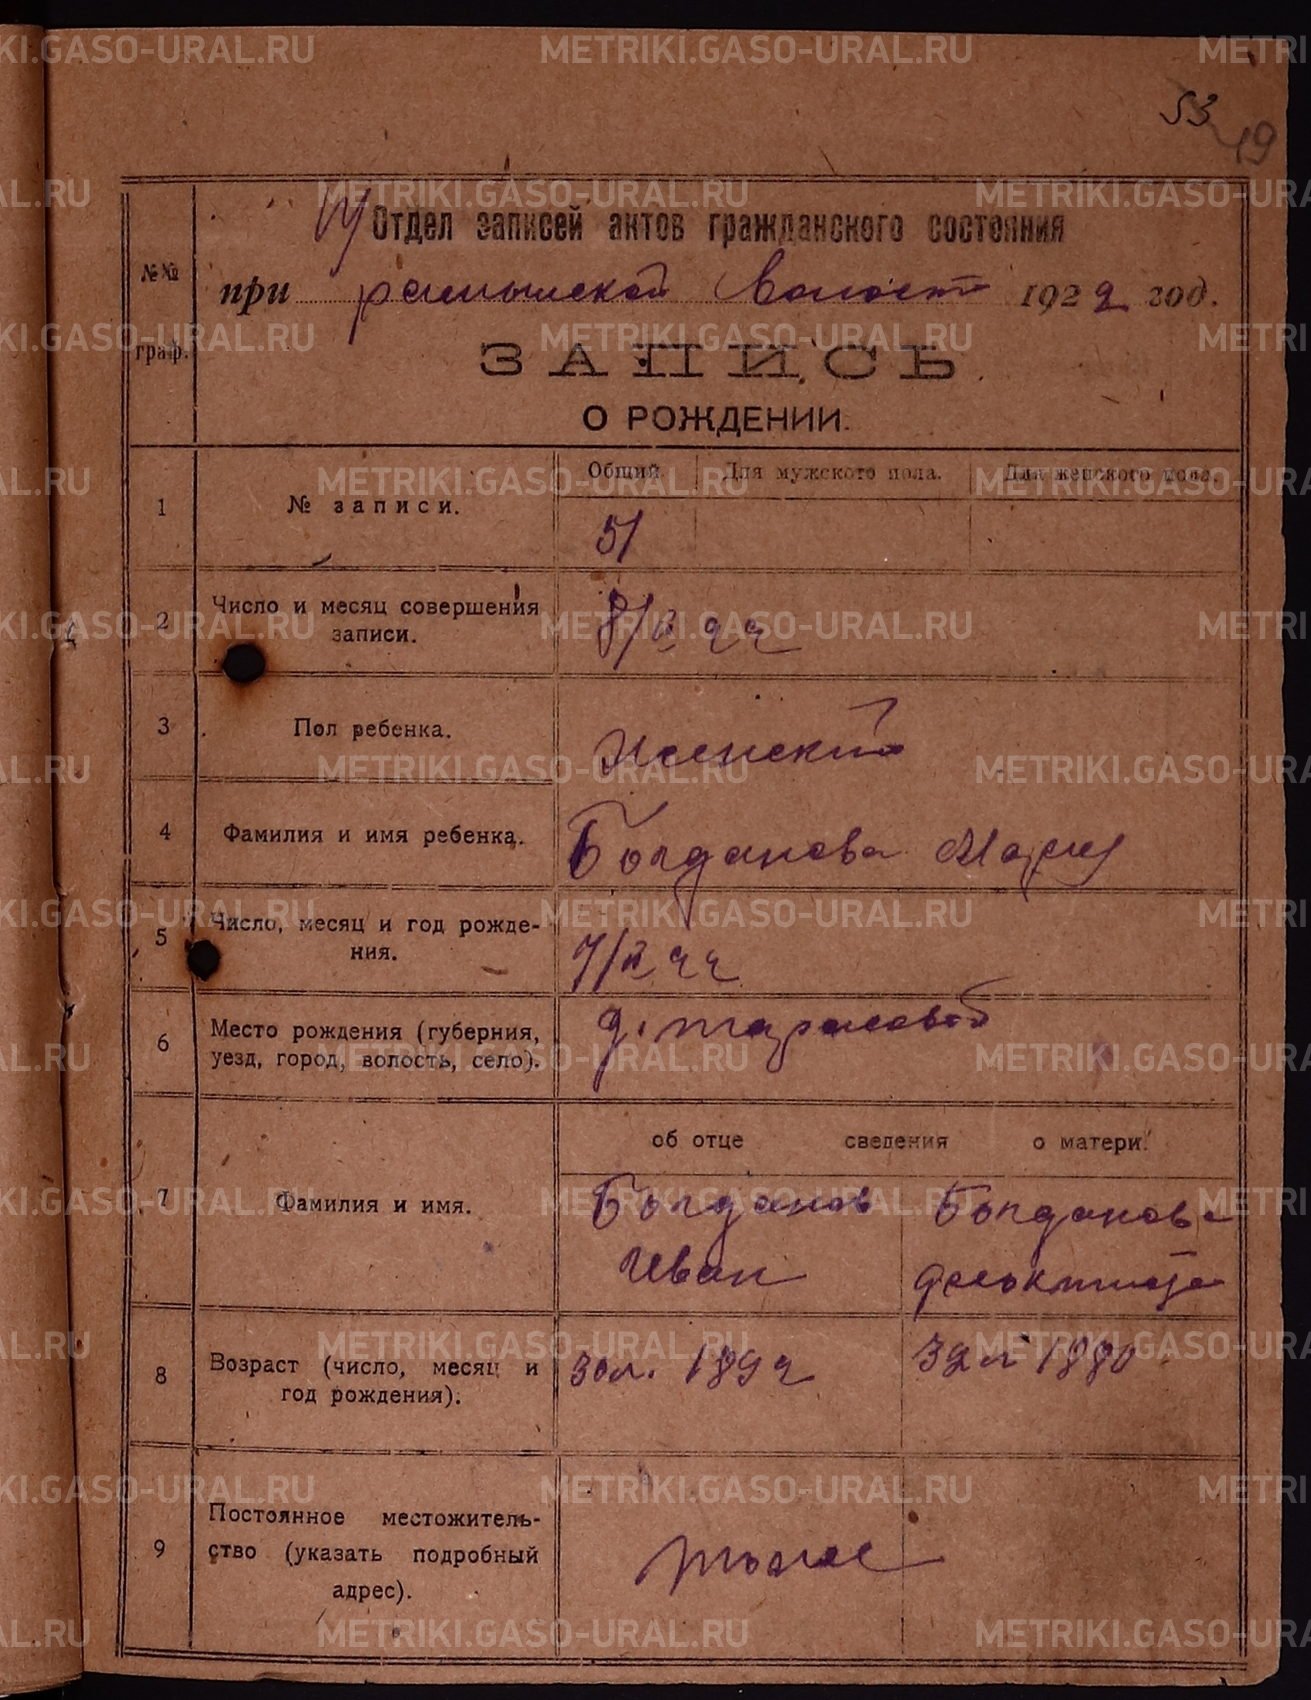 53
49
Отдел записей актов гражданского состояния
при Рамыльской Волости 1922 год.
№№ граф.
ЗАПИСЬ
О РОЖДЕНИИ.
Общий Для мужского пола. Для женского пола.
1 № записи.
51
2 Число и месяц совершения
записи.
8/II 22
3 Пол ребенка. Женский
4 Фамилия и имя ребенка. Богданова Мария
5 Число, месяц и год рожде-
ния.
7/II 22
6 Место рождения (губерния,
уезд, город, волость, село).
д. Тарасовой
об отце сведения о матери.
7 Фамилия и имя.
Богданов Богданова
Иван Феоктиста
8 Возраст (число, месяц и
год рождения).
30 л. 1892 32 л 1880
9 Постоянное местожитель-
ство (указать подробный
адрес).
тоже
METRIKI.GASO-URAL.RU